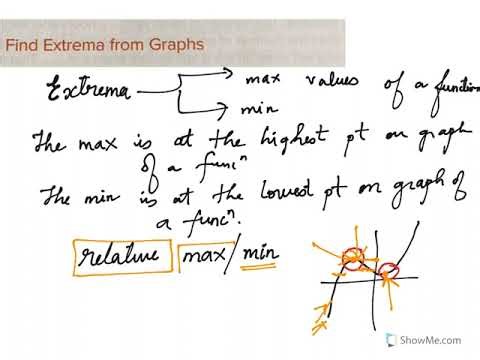 Find Extrema from Graphs
Extrema max values of a function
min
The max is at the highest pt on graph
of a funcⁿ
The min is at the lowest pt on graph of
a funcⁿ.
relative max/min
ShowMe.com